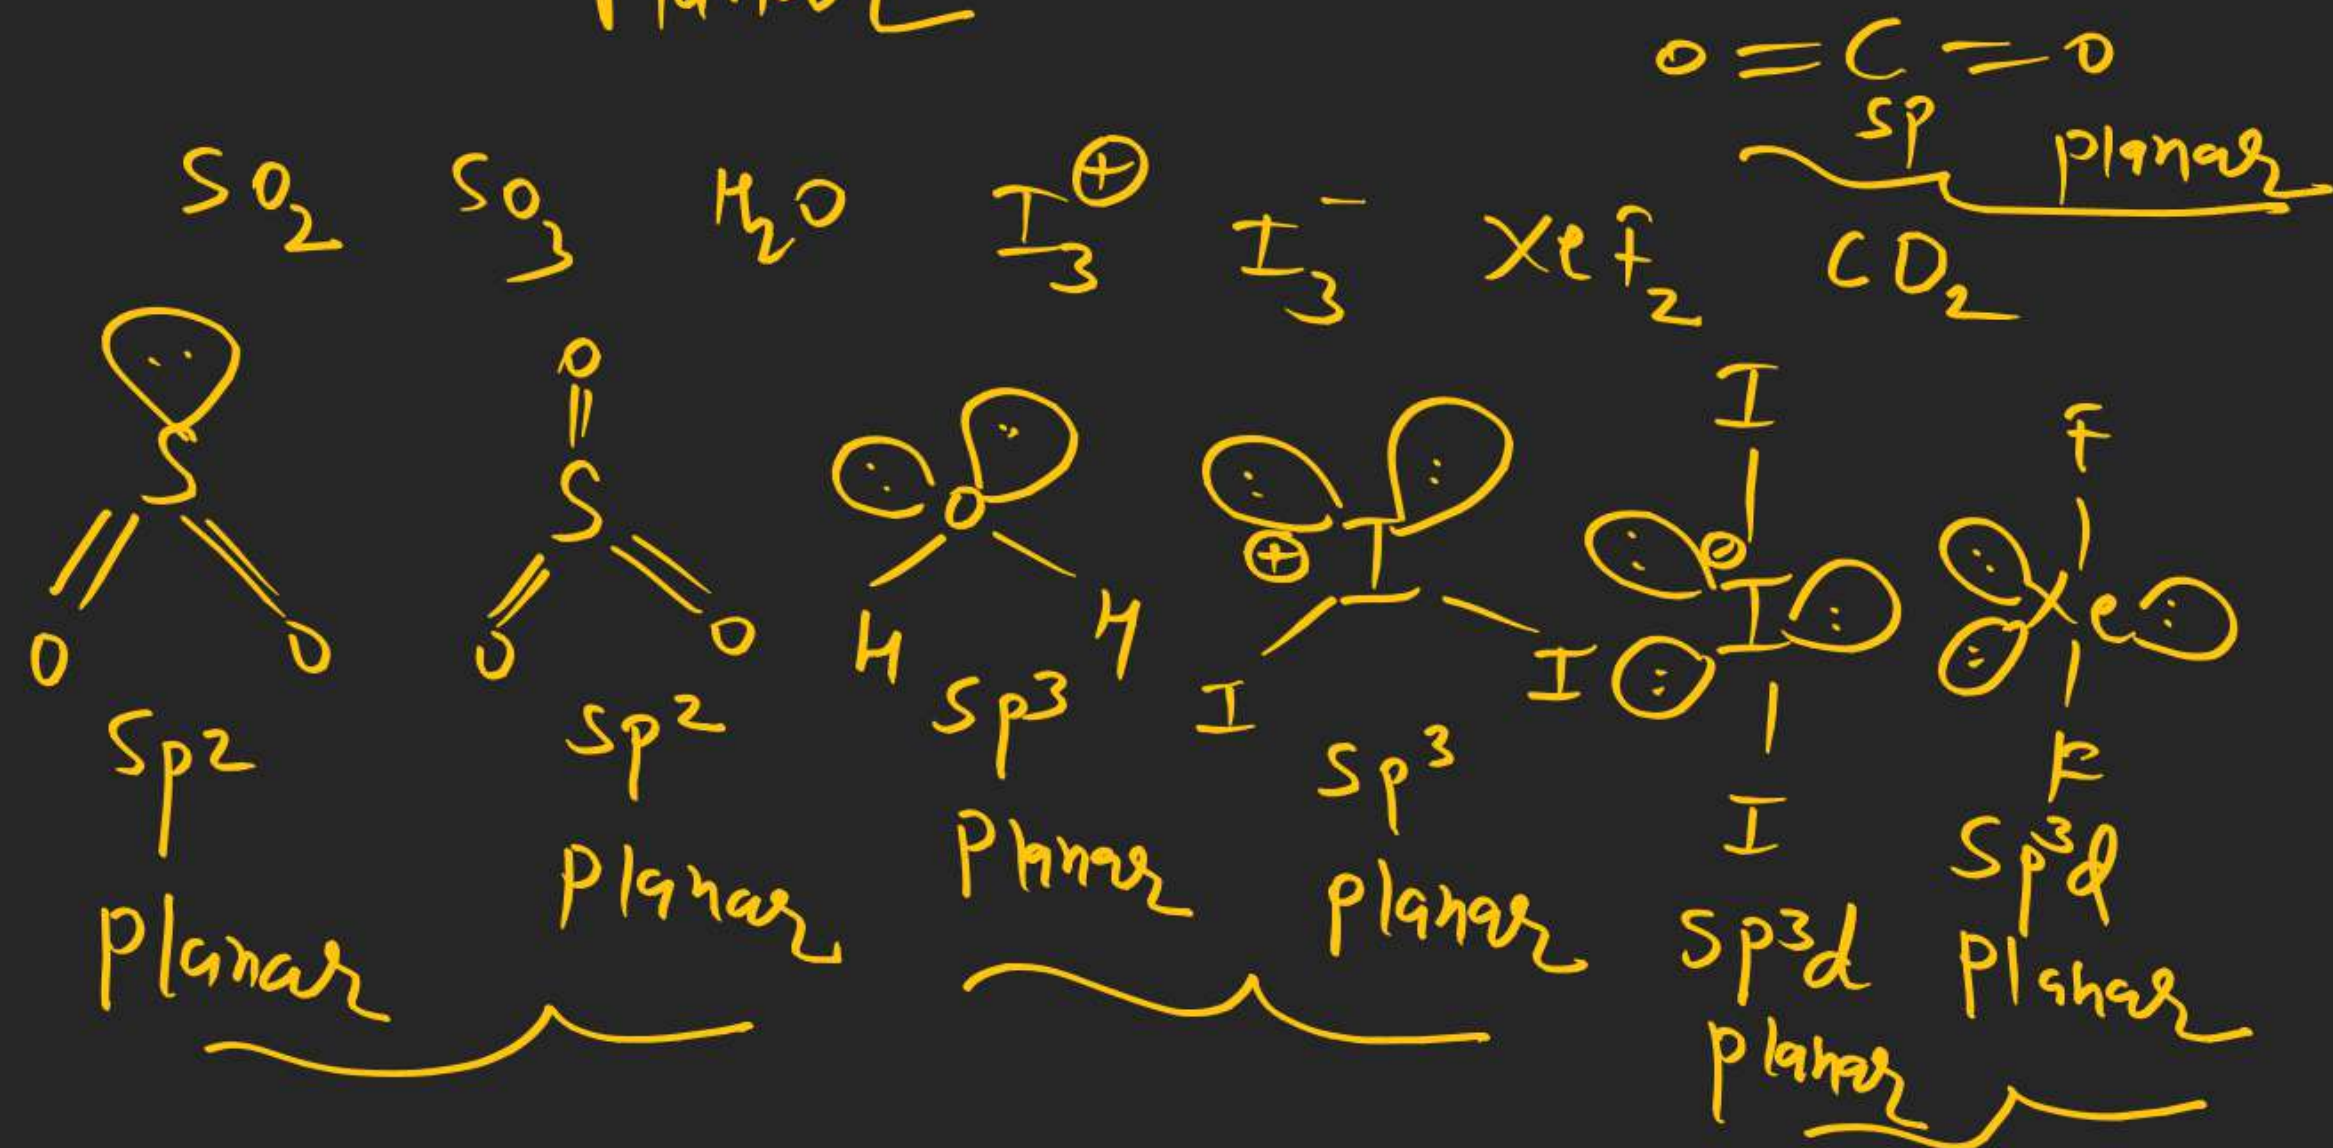 Planar
O=C=O
sp planar
SO₂ SO₃ H₂O I₃⊕ I₃⁻ XeF₂ CO₂
O I F
S S O I ⊕ ⊖ I Xe
O O O O H H I I I F
sp² sp² sp³ sp³ sp³d sp³d
planar planar planar planar planar planar